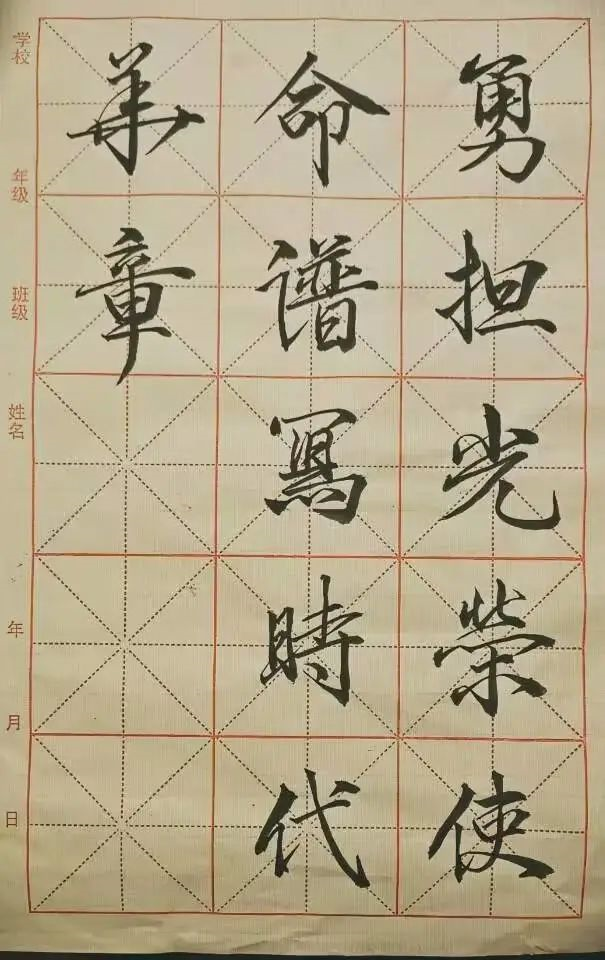 勇担光荣使
命谱寫時代
華章
学校
年级
班级
姓名
年
月
日